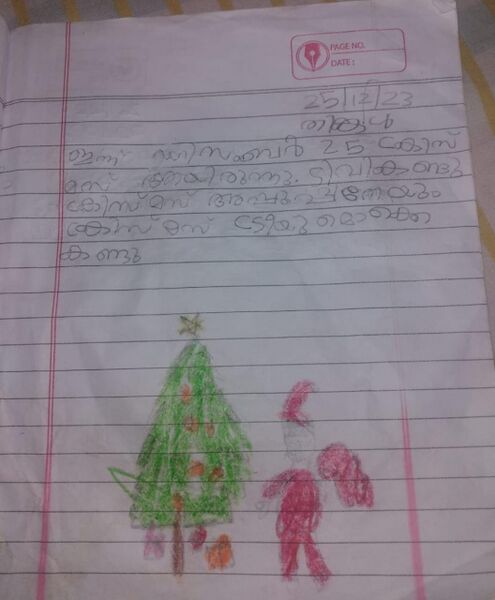 PAGE NO.
DATE :
25/12/23
തിങ്കൾ
ഇന്ന് ഡിസംബർ 25 ക്രിസ്
മസ് ആയിരുന്നു. ടിവികണ്ടു
ക്രിസ്മസ് അപ്പുപ്പനേയും
ക്രിസ്മസ് ട്രീയുമൊക്കെ
കണ്ടു